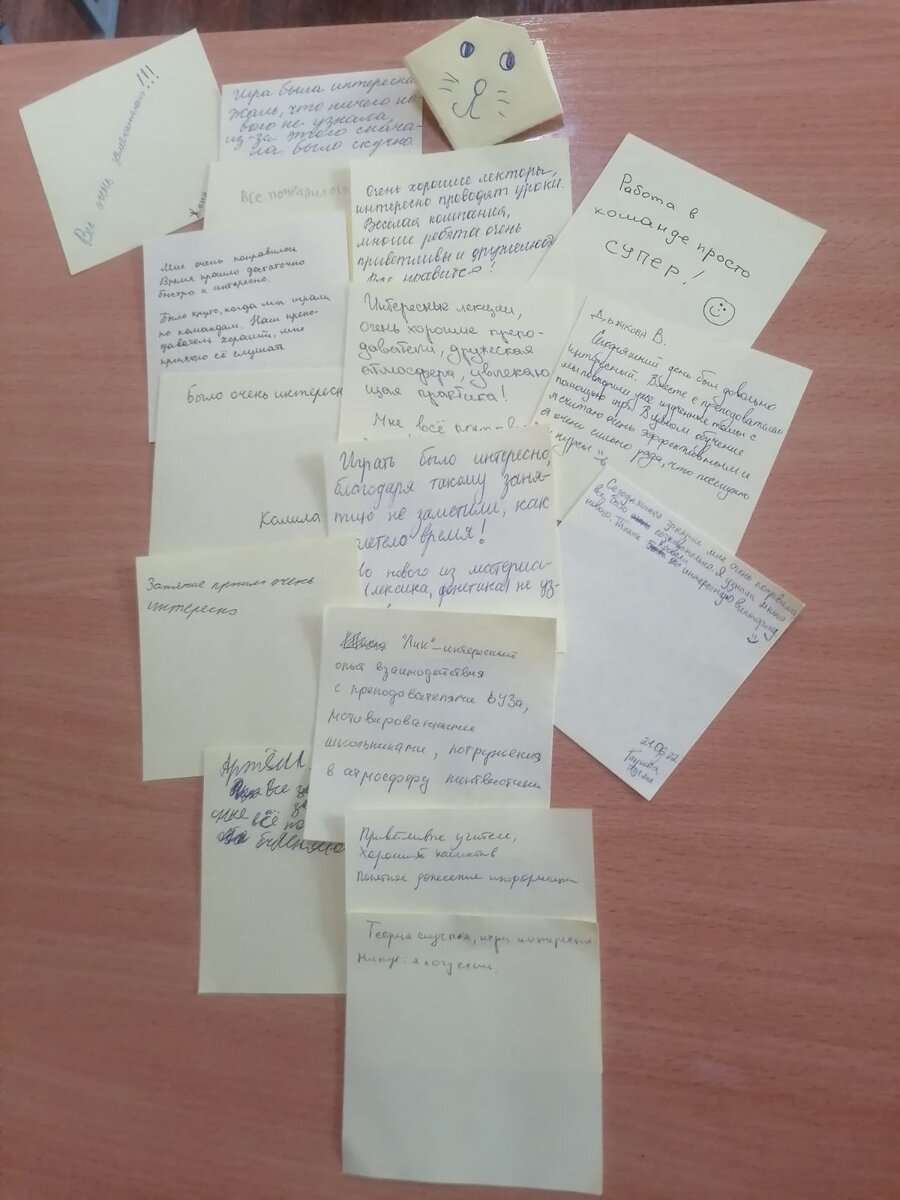 Все очень замечательно!!!
Женя
Игра была интересна
Жаль, что ничего но
вого не узнала,
из-за этого снача-
ла было скучно
Все понравилось
Очень хорошие лекторы,
интересно проводят уроки.
Весёлая компания,
многие ребята очень
приветливы и дружелюб
нравится!
Работа в
команде просто
СУПЕР!
Мне очень понравилось
Время прошло достаточно
быстро и интересно.
Было круто, когда мы играли
по командам. Наш препо-
даватель хороший, мне
приятно её слушать
Интересные лекции,
очень хорошие препо-
даватели, дружеская
атмосфера, увлекаю
щая практика!
Мне всё понрав
В.
Сегодняшний день был довольно
интересный. Вместе с преподавателем
мы повторили уже изученные темы с
помощью игр. В целом, обучение
я считаю очень эффективным и
я очень сильно рада, что посещаю
курсы
Было очень интересн
Камила
Играть было интересно,
благодаря такому заня-
тию не заметили, как
летело время!
Но нового из материа-
(лексика, фонетика) не уз-
Сегодняшнее занятие мне очень понравилось
всё было познавательно. Я узнала много
нового. Также провели интересную викторину
21.06.22
Занятие прошло очень
интересно
"Лик" - интересный
опыт взаимодействия
с преподавателями ВУЗа,
мотивированными
школьниками, погружения
в атмосферу лингвистики
Артём
все за
мне всё по
Приветливые учителя,
Хороший коллектив
Понятное донесение информации
Теория скучная, игры интересные